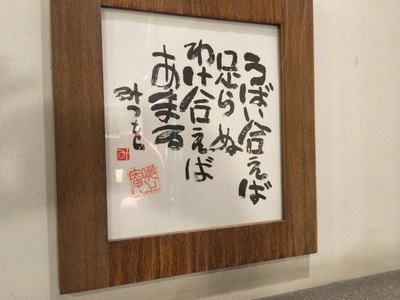 うばい合えば
足らぬ
わけ合えば
あまる
みつを
み